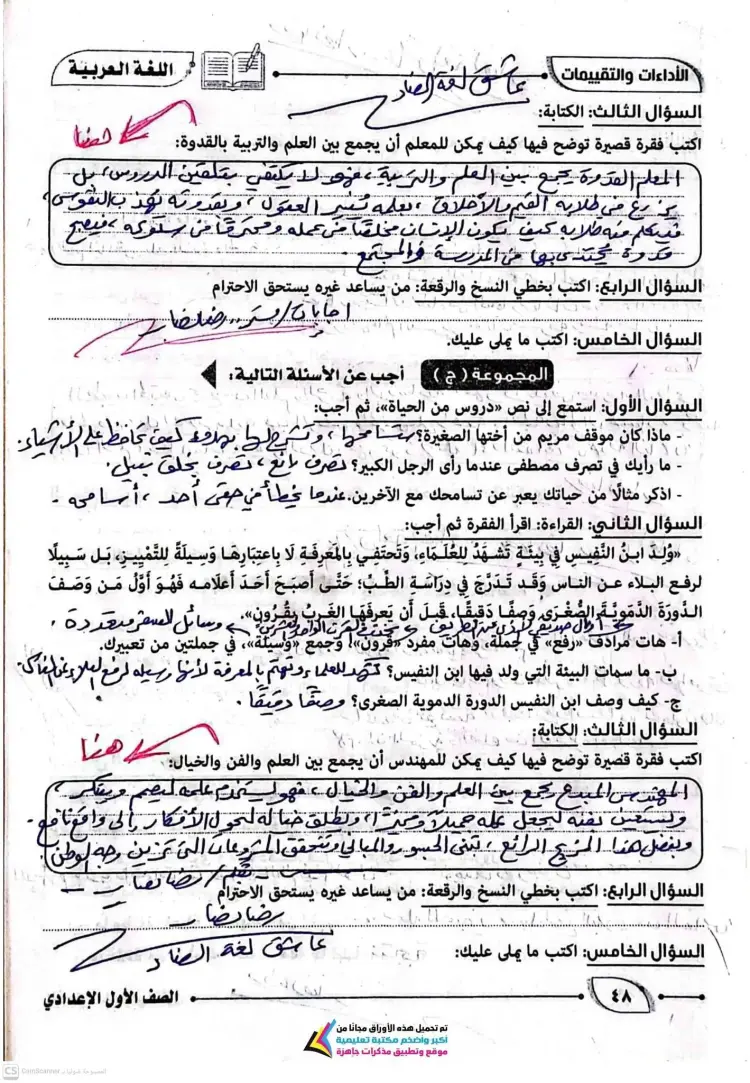 الأداءات والتقييمات
اللغة العربية
عاشق لغة الضاد
السؤال الثالث: الكتابة:
اكتب فقرة قصيرة توضح فيها كيف يمكن للمعلم أن يجمع بين العلم والتربية بالقدوة:
المعلم القدوة يجمع بين العلم والتربية، فهو لا يكتفي بتلقين الدروس، بل
يزرع في طلابه القيم والأخلاق، بعلمه تنير العقول، وبقدوته تهذب النفوس،
فيتعلم منه طلابه كيف يكون الإنسان مخلقا في عمله ومحترما في سلوكه، فيصبح
قدوة يحتذى بها في المدرسة والمجتمع.
السؤال الرابع: اكتب بخطي النسخ والرقعة: من يساعد غيره يستحق الاحترام
اجابات/ مستر.. رضا نصار
السؤال الخامس: اكتب ما يملى عليك.
المجموعة (ج) أجب عن الأسئلة التالية:
السؤال الأول: استمع إلى نص «دروس من الحياة»، ثم أجب:
- ماذا كان موقف مريم من أختها الصغيرة؟ ستسامحها، وتشرح لها بهدوء كيف تحافظ على الأشياء.
- ما رأيك في تصرف مصطفى عندما رأى الرجل الكبير؟ تصرف رائع، تصرف بخلق نبيل.
- اذكر مثالًا من حياتك يعبر عن تسامحك مع الآخرين. عندما يخطأ في حقي أحد، أسامحه.
السؤال الثاني: القراءة: اقرأ الفقرة ثم أجب:
«وُلِدَ ابنُ النَّفِيسِ فِي بِيئَةٍ تَشْهَدُ لِلعُلَمَاءِ، وَتَحتَفِي بِالمَعْرِفَةِ لَا بِاعتِبَارِهَا وَسِيلَةً لِلتَّمْيِيزِ، بَل سَبِيلًا
لرفع البلاء عن الناس وَقَد تَدَرَّجَ فِي دِرَاسَةِ الطِّبِّ؛ حَتَّى أصبَحَ أَحَدَ أعلامه فَهُوَ أَوَّلُ مَن وَصَفَ
الدَّورَةَ الدَّمَوِيَّةَ الصُّغْرَى وَصفًا دَقِيقًا، قَبلَ أَن يَعرِفَهَا الغَربُ بِقُرُونٍ».
وسائل للسفر متعددة.
أ- هات مرادف «رفع» في جملة، وهات مفرد «قرون»، وجمع «وسيلة»، في جملتين من تعبيرك.
ب- ما سمات البيئة التي ولد فيها ابن النفيس؟ تشهد للعلماء وتهتم بالمعرفة لأنها وسيلة لرفع البلاء عن الناس.
ج- كيف وصف ابن النفيس الدورة الدموية الصغرى؟ وصفًا دقيقًا.
السؤال الثالث: الكتابة:
هنا
اكتب فقرة قصيرة توضح فيها كيف يمكن للمهندس أن يجمع بين العلم والفن والخيال:
المهندس المبدع يجمع بين العلم والفن والخيال، فهو يستخدم علمه ليصمم ويبتكر،
ويستعين بفنه ليجعل عمله جميلا ومميزا، ويطلق خياله ليحول الأفكار إلى واقع نافع.
وبفضل هذا المزيج الرائع، تبنى الجسور والمباني وتتحقق المشروعات التي تزين وجه الوطن
بقلم/ رضا نصار
السؤال الرابع: اكتب بخطي النسخ والرقعة: من يساعد غيره يستحق الاحترام
رضا نصار
عاشق لغة الضاد
السؤال الخامس: اكتب ما يملى عليك:
٤٨
الصف الأول الإعدادي
تم تحميل هذه الأوراق مجانًا من
أكبر وأضخم مكتبة تعليمية
موقع وتطبيق مذكرات جاهزة
CS CamScanner